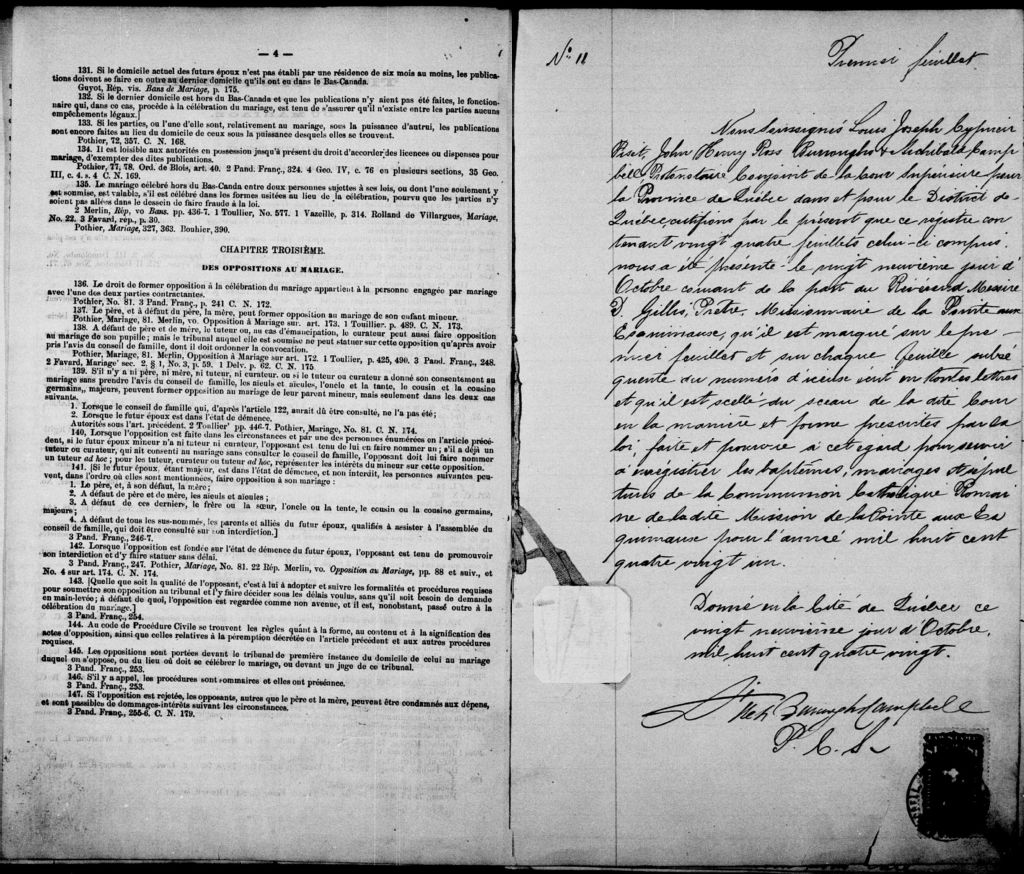 — 4 —
131. Si le domicile actuel des futurs époux n'est pas établi par une résidence de six mois au moins, les publica-
tions doivent se faire en outre au dernier domicile qu'ils ont eu dans le Bas-Canada.
Guyot, Rép. vis. Bans de Mariage, p. 175.
132. Si le dernier domicile est hors du Bas-Canada et que les publications n'y aient pas été faites, le fonction-
naire qui, dans ce cas, procède à la célébration du mariage, est tenu de s'assurer qu'il n'existe entre les parties aucuns
empêchements légaux.
133. Si les parties, ou l'une d'elle sont, relativement au mariage, sous la puissance d'autrui, les publications
sont encore faites au lieu du domicile de ceux sous la puissance desquels elles se trouvent.
Pothier, 72, 357. C. N. 168.
134. Il est loisible aux autorités en possession jusqu'à présent du droit d'accorder des licences ou dispenses pour
mariage, d'exempter des dites publications.
Pothier, 77, 78. Ord. de Blois, art. 40. 2 Pand. Franç., 324. 4 Geo. IV, c. 76 en plusieurs sections, 35 Geo.
III, c. 4. s. 4 C. N. 169.
135. Le mariage célébré hors du Bas-Canda entre deux personnes sujettes à ses lois, ou dont l'une seulement y
est soumise, est valable, s'il est célébré dans les formes usitées au lieu de la célébration, pourvu que les parties n'y
soient pas allées dans le dessein de faire fraude à la loi.
2 Merlin, Rép, vo Bans. pp. 436-7. 1 Toullier, No. 577. 1 Vazeille, p. 314. Rolland de Villargues, Mariage,
No. 22. 3 Favard, rép., p. 30.
Pothier, Mariage, 327, 363. Bouhier, 390.
CHAPITRE TROISIÈME.
DES OPPOSITIONS AU MARIAGE.
136. Le droit de former opposition à la célébration du mariage appartient à la personne engagée par mariage
avec l'une des deux parties contractantes.
Pothier, No. 81. 3 Pand. Franç., p. 241 C. N. 172.
137. Le père, et à défaut du père, la mère, peut former opposition au mariage de son enfant mineur.
Pothier, Mariage, 81. Merlin, vo. Opposition à Mariage sur. art. 173. 1 Touillier. p. 489. C. N. 173.
138. A défaut de père et de mère, le tuteur, ou, au cas d'émancipation, le curateur peut aussi faire opposition
au mariage de son pupille; mais le tribunal auquel elle est soumise ne peut statuer sur cette opposition qu'après avoir
pris l'avis du conseil de famille, dont il doit ordonner la convocation.
Pothier, Mariage, 81. Merlin, Opposition à Mariage sur art. 172. 1 Toulier, p. 425, 490. 3 Pand. Franç., 248.
2 Favard, Mariage' sec. 2. § 1, No. 3, p. 59. 1 Delv. p. 62. C. N. 175.
139. S'il n'y a ni père, ni mère, ni tuteur, ni curateur, ou si le tuteur ou curateur a donné son consentement au
mariage sans prendre l'avis du conseil de famille, les aïeuls et aïeules, l'oncle et la tante, le cousin et la cousine
germains, majeurs, peuvent former opposition au mariage de leur parent mineur, mais seulement dans les deux cas
suivants.
1. Lorsque le conseil de famille qui, d'après l'article 122, aurait dû être consulté, ne l'a pas été;
2. Lorsque le futur époux est dans l'état de démence.
Autorités sous l'art. précédent. 2 Toullier' pp. 446-7. Pothier, Mariage, No. 81. C. N. 174.
140. Lorsque l'opposition est faite dans les circonstances et par une des personnes énumérées en l'article précé-
dent, si le futur époux mineur n'a ni tuteur ni curateur, l'opposant est tenu de lui en faire nommer un; s'il a déjà un
tuteur ou curateur, qui ait consenti au mariage sans consulter le conseil de famille, l'opposant doit lui faire nommer
un tuteur ad hoc; pour les tuteur, curateur ou tuteur ad hoc, représenter les intérêts du mineur sur cette opposition.
141. [Si le futur époux, étant majeur, est dans l'état de démence, et non interdit, les personnes suivantes peu-
vent, dans l'ordre où elles sont mentionnées, faire opposition à son mariage :
1. Le père, et, à son défaut, la mère;
2. A défaut de père et de mère, les aïeuls et aïeules;
3. A défaut de ces derniers, le frère ou la sœur, l'oncle ou la tante, le cousin ou la cousine germains,
majeurs;
4. A défaut de tous les sus-nommés, les parents et alliés du futur époux, qualifiés à assister à l'assemblée du
conseil de famille, qui doit être consulté sur son interdiction.]
3 Pand. Franç., 246-7.
142. Lorsque l'opposition est fondée sur l'état de démence du futur époux, l'opposant est tenu de promouvoir
son interdiction et d'y faire statuer sans délai.
3 Pand. Franç., 247. Pothier, Mariage, No. 81. 22 Rép. Merlin, vo. Opposition au Mariage, pp. 88 et suiv., et
No. 4 sur art. 174. C. N. 174.
143. [Quelque soit la qualité de l'opposant, c'est à lui à adopter et suivre les formalités et procédures requises
pour soumettre son opposition au tribunal et l'y faire décider sous les délais voulus, sans qu'il soit besoin de demande
en main-levée; à défaut de quoi, l'opposition est regardée comme non avenue, et il est, nonobstant, passé outre à la
célébration du mariage.]
3 Pand. Franç., 254.
144. Au code de Procédure Civile se trouvent les règles quant à la forme, au contenu et à la signification des
actes d'opposition, ainsi que celles relatives à la péremption décrétée en l'article précédent et aux autres procédures
requises.
145. Les oppositions sont portées devant le tribunal de première instance du domicile de celui au mariage
duquel on s'oppose, ou du lieu où doit se célébrer le mariage, ou devant un juge de ce tribunal.
3 Pand. Franç., 253.
146. S'il y a appel, les procédures sont sommaires et elles ont préséance.
3 Pand. Franç., 253.
147. Si l'opposition est rejetée, les opposants, autres que le père et la mère, peuvent être condamnés aux dépens,
et sont passibles de dommages-intérêts suivant les circonstances.
3 Pand. Franç., 255-6. C. N. 179.
No 11
Premier feuillet
Nous Soussignés Louis Joseph Cyprien
Fiset, John Henry Ross Burroughs & Archibald Camp
bell, Protonotaire Conjoint de la Cour Supérieure pour
la Province de Québec dans et pour le District de
Québec, certifions par le présent que ce régistre con
tenant vingt quatre feuillets celui-ci compris,
nous a été présenté le vingt neuvième jour d'
Octobre courant de la part du Révérend Messire
D. Gillis, Prêtre, Missionnaire de la Pointe aux
Esquimause, qu'il est marqué sur le pre
mier feuillet et sur chaque feuille subsé
quente du numéro d'icense écrit en toutes lettres
et qu'il est scellé du sceau de la dite Cour
en la manière et forme prescrites par la
loi, faite et pourvue à cet egard pour servir
à enregistrer les baptêmes, mariages et sépul
tures de la Communion Catholique Romai
ne de la dite Mission de la Pointe aux Es
quimause pour l'année mil huit cent
quatre vingt un.
Donné en la Cité de Québec ce
vingt neuvième jour d'Octobre,
mil huit cent quatre vingt.
Fiset Burroughs Campbell
P. C. S.